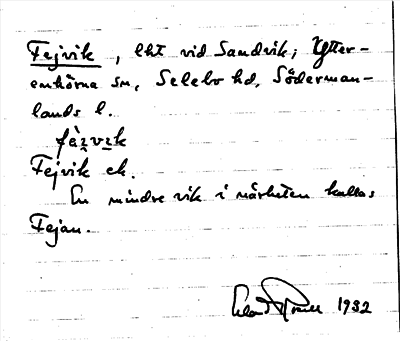 Fejvik, lht vid Sandvik; Ytter-
enhörna sn, Selebo hd, Söderman-
lands l.
fèi̯vik
Fejvik ek.
En mindre vik i närheten kallas
Fejan.
1932